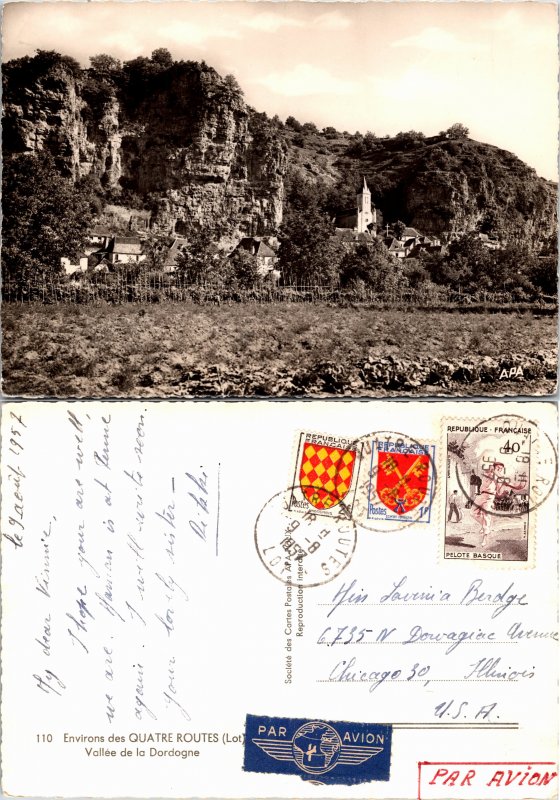 APA
le 9 août 1957
My dear Vinnie,
I hope your are well,
we are. Maman is at Penne
again. I will write soon.
Your lovely sister –
REPUBLIQUE FRANÇAISE
Postes
REPUBLIQUE FRANÇAISE
Postes
1F
REPUBLIQUE - FRANÇAISE
40F
PELOTE BASQUE
QUATRE ROUTES
LOT
Société des Cartes Postales APA
Reproduction interdite
Miss Lavinia Berdge
6735 N Dowagiac Avenue
Chicago 30, Illinois
U.S.A.
110 Environs des QUATRE ROUTES (Lot)
Vallée de la Dordogne
PAR AVION
PAR AVION